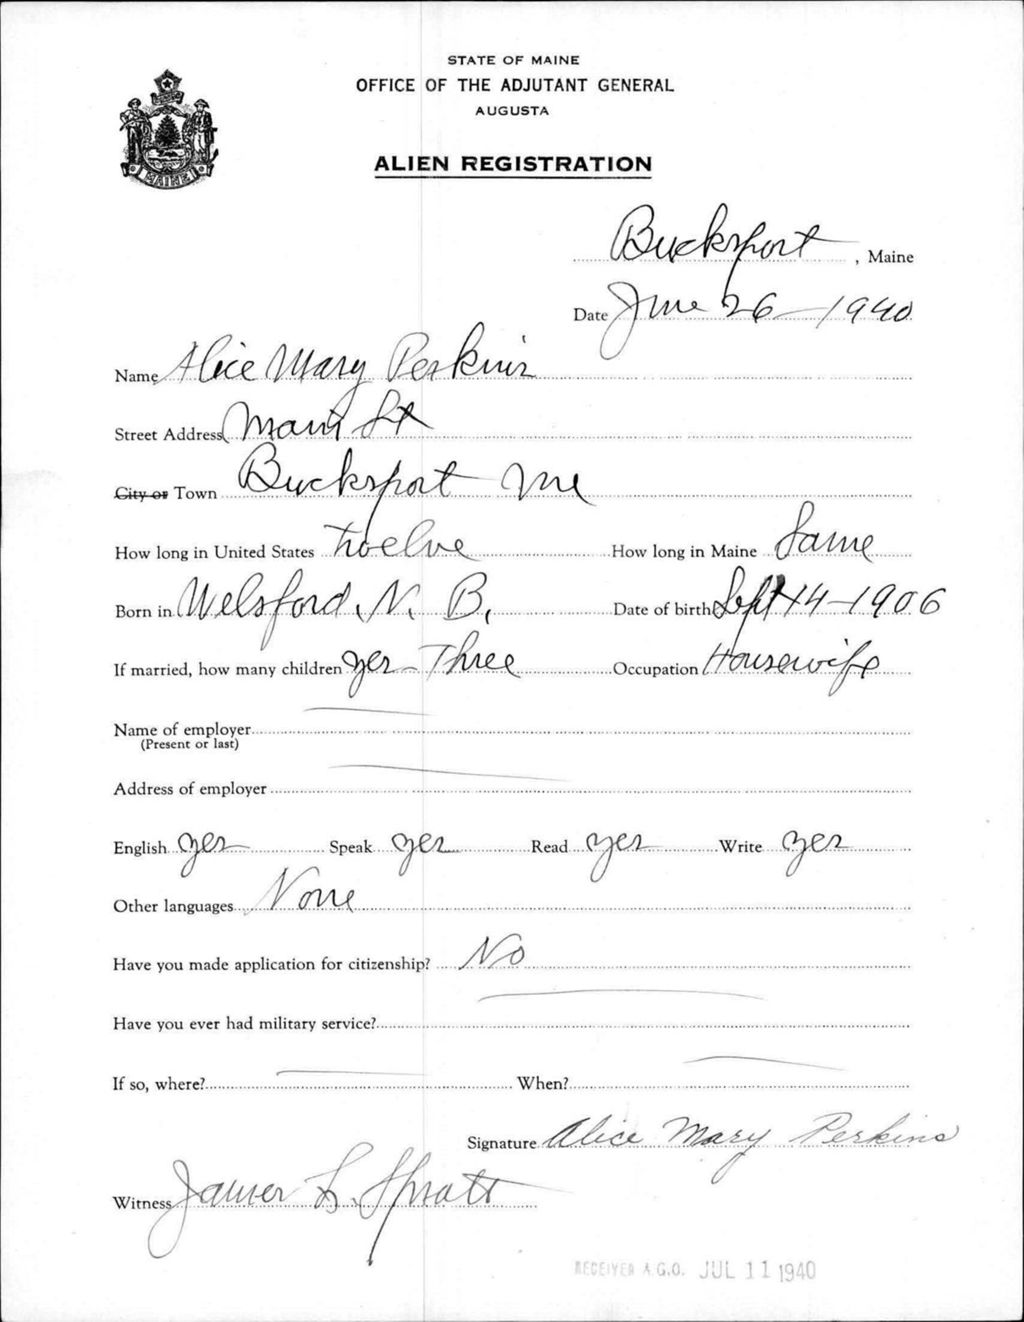 STATE OF MAINE
OFFICE OF THE ADJUTANT GENERAL
AUGUSTA
ALIEN REGISTRATION
MAINE
Bucksport, Maine
Date June 26 - 1940
Name Alice Mary Perkins
Street Address Main St
City or Town Bucksport Me
How long in United States Twelve How long in Maine Same
Born in Welsford, N. B, Date of birth Sept 14 - 1906
If married, how many children yes - Three Occupation Housewife
Name of employer
(Present or last)
Address of employer
English yes Speak yes Read yes Write yes
Other languages None
Have you made application for citizenship? No
Have you ever had military service?
If so, where? When?
Signature Alice Mary Perkins
Witness James L. Spratt
RECEIVED A.G.O. JUL 11 1940